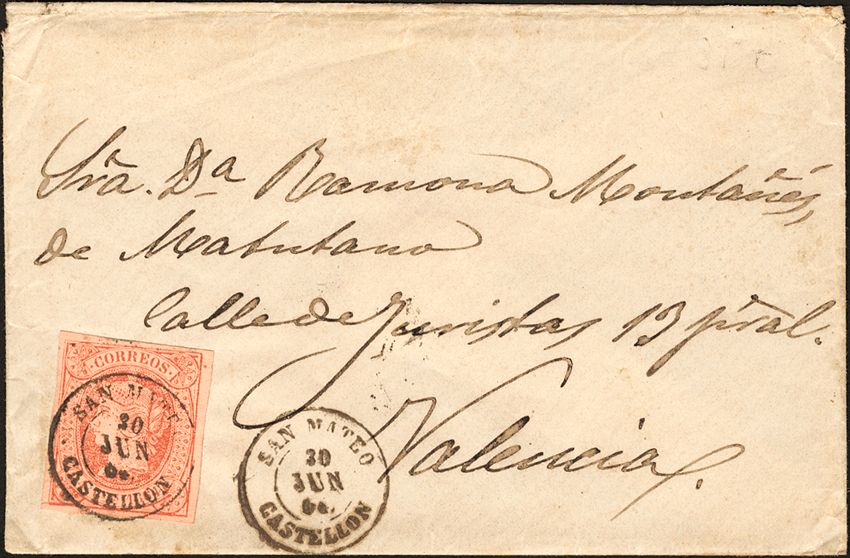 Sra. Da Ramona Montañés,
de Matutano
Calle de Juristas 13 pral.
Valencia.
CORREOS
SAN MATEO
30
JUN
64
CASTELLON
SAN MATEO
30
JUN
64.
CASTELLON